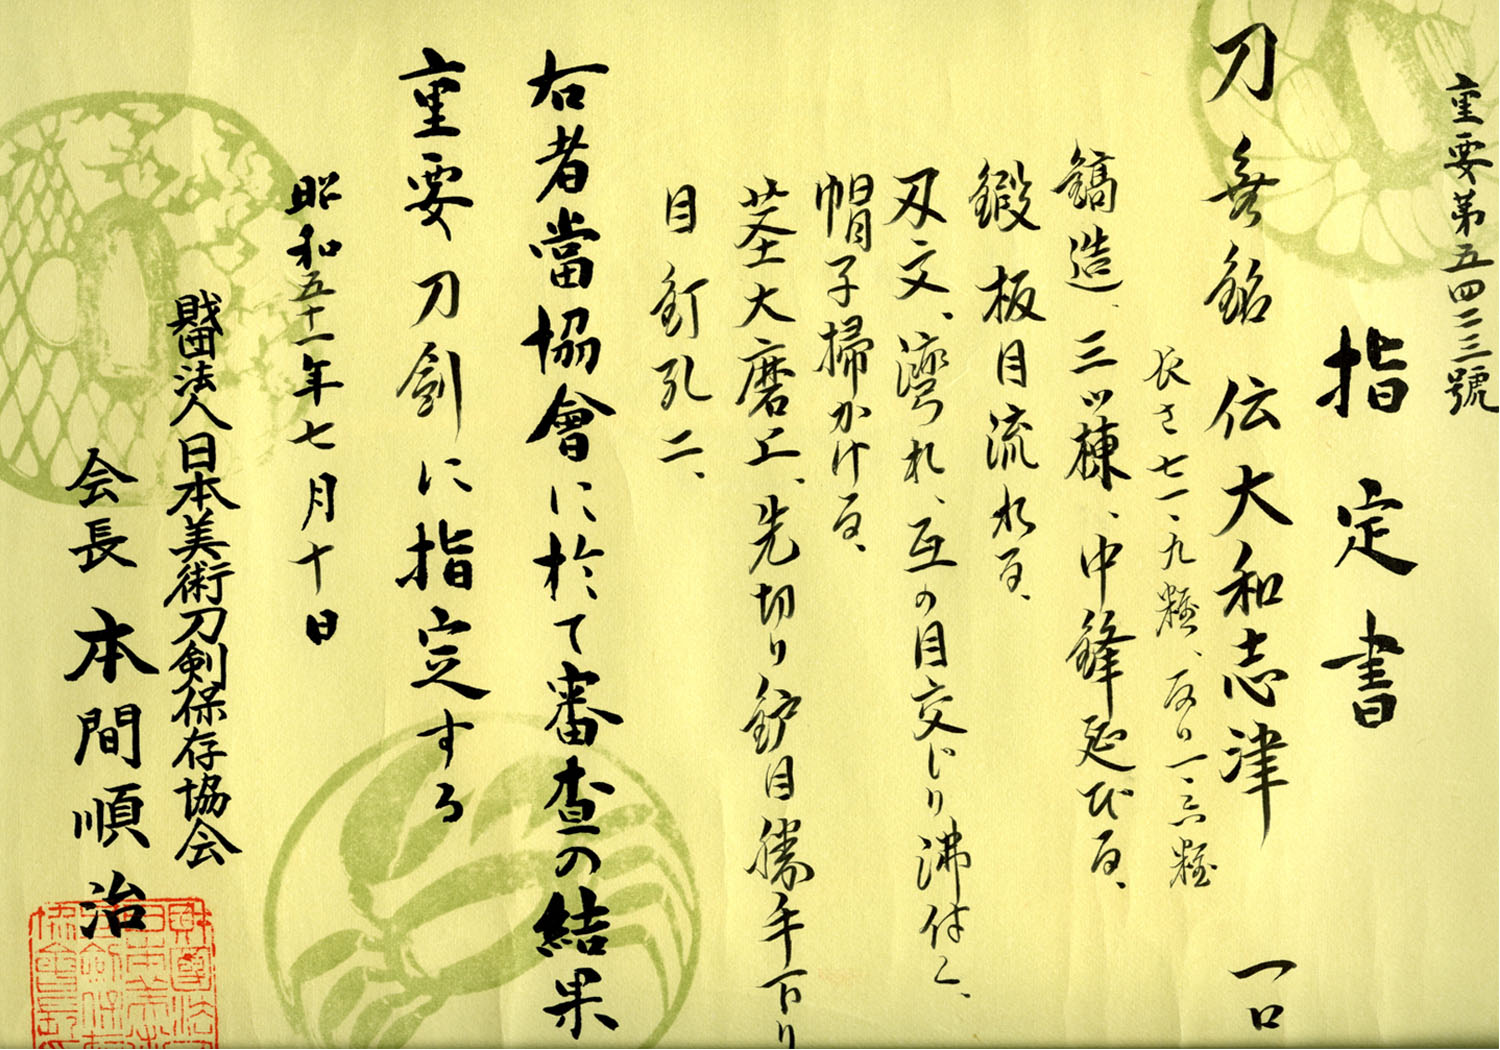 重要第五四二三號
指定書
刀 無銘 伝大和志津 一口
長さ七一、九糎、反り一、六糎
鎬造、三ッ棟、中鋒延びる、
鍛 板目流れる、
刃文、湾れ、互の目交じり沸付く、
帽子掃かける、
茎大磨上、先切り鈩目勝手下り
目釘孔二、
右者當協會に於て審査の結果
重要刀剣に指定する
昭和五十一年七月十日
財団法人日本美術刀剣保存協会
会長 本間順治